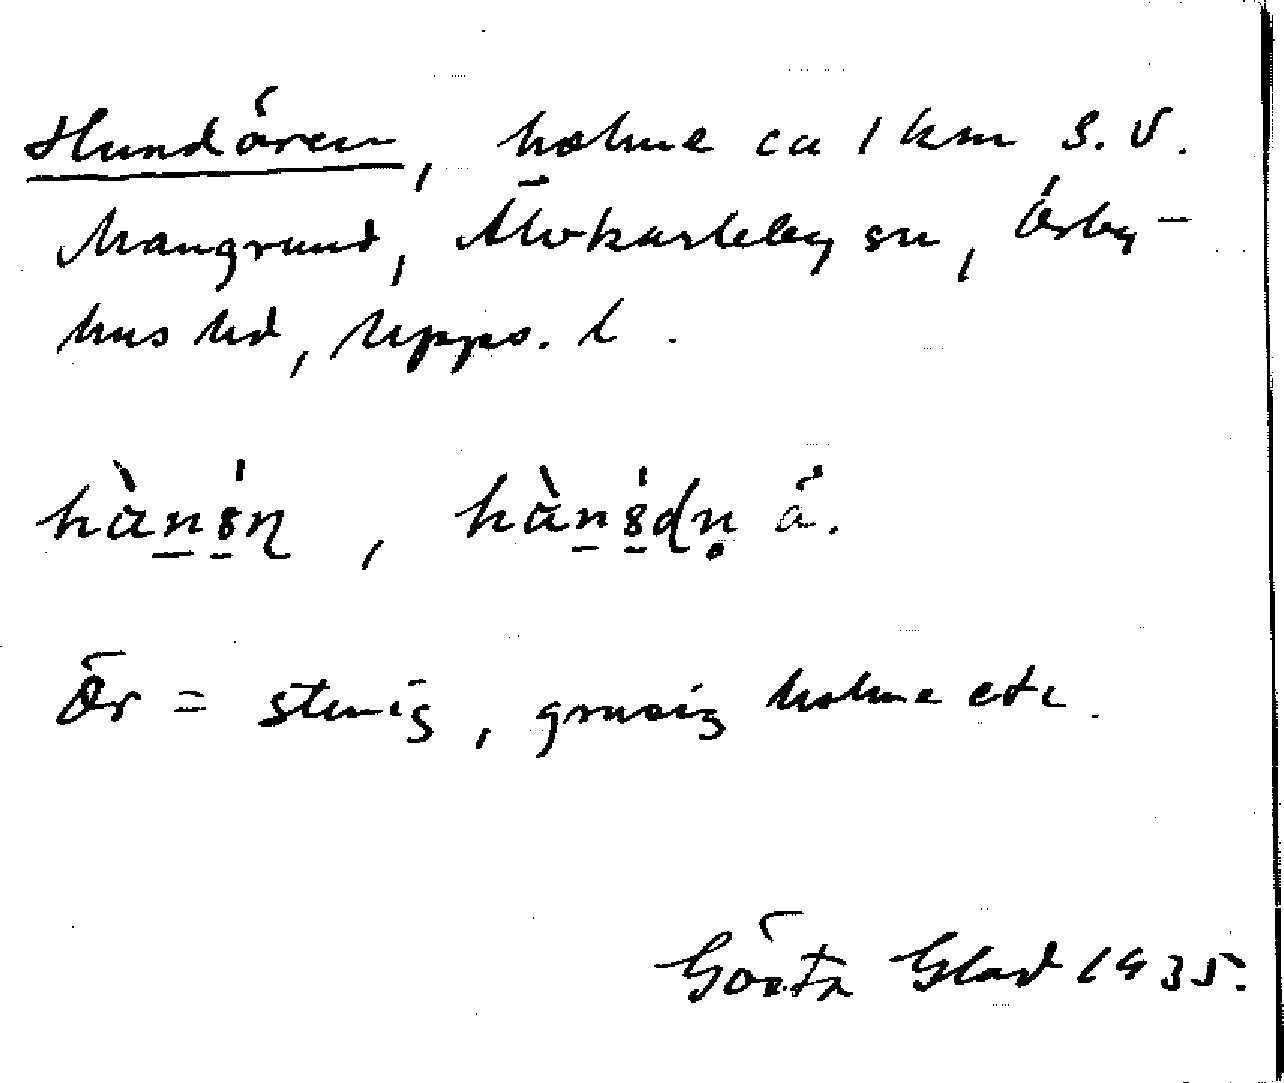 Hundören, holme ca 1 km S.V.
Mangrund, Älvkarleby sn, Örby-
hus hd, Upps. l.
hàn, hàn å.
Ör = stenig, grusig holme etc.
Gösta Glad 1935.